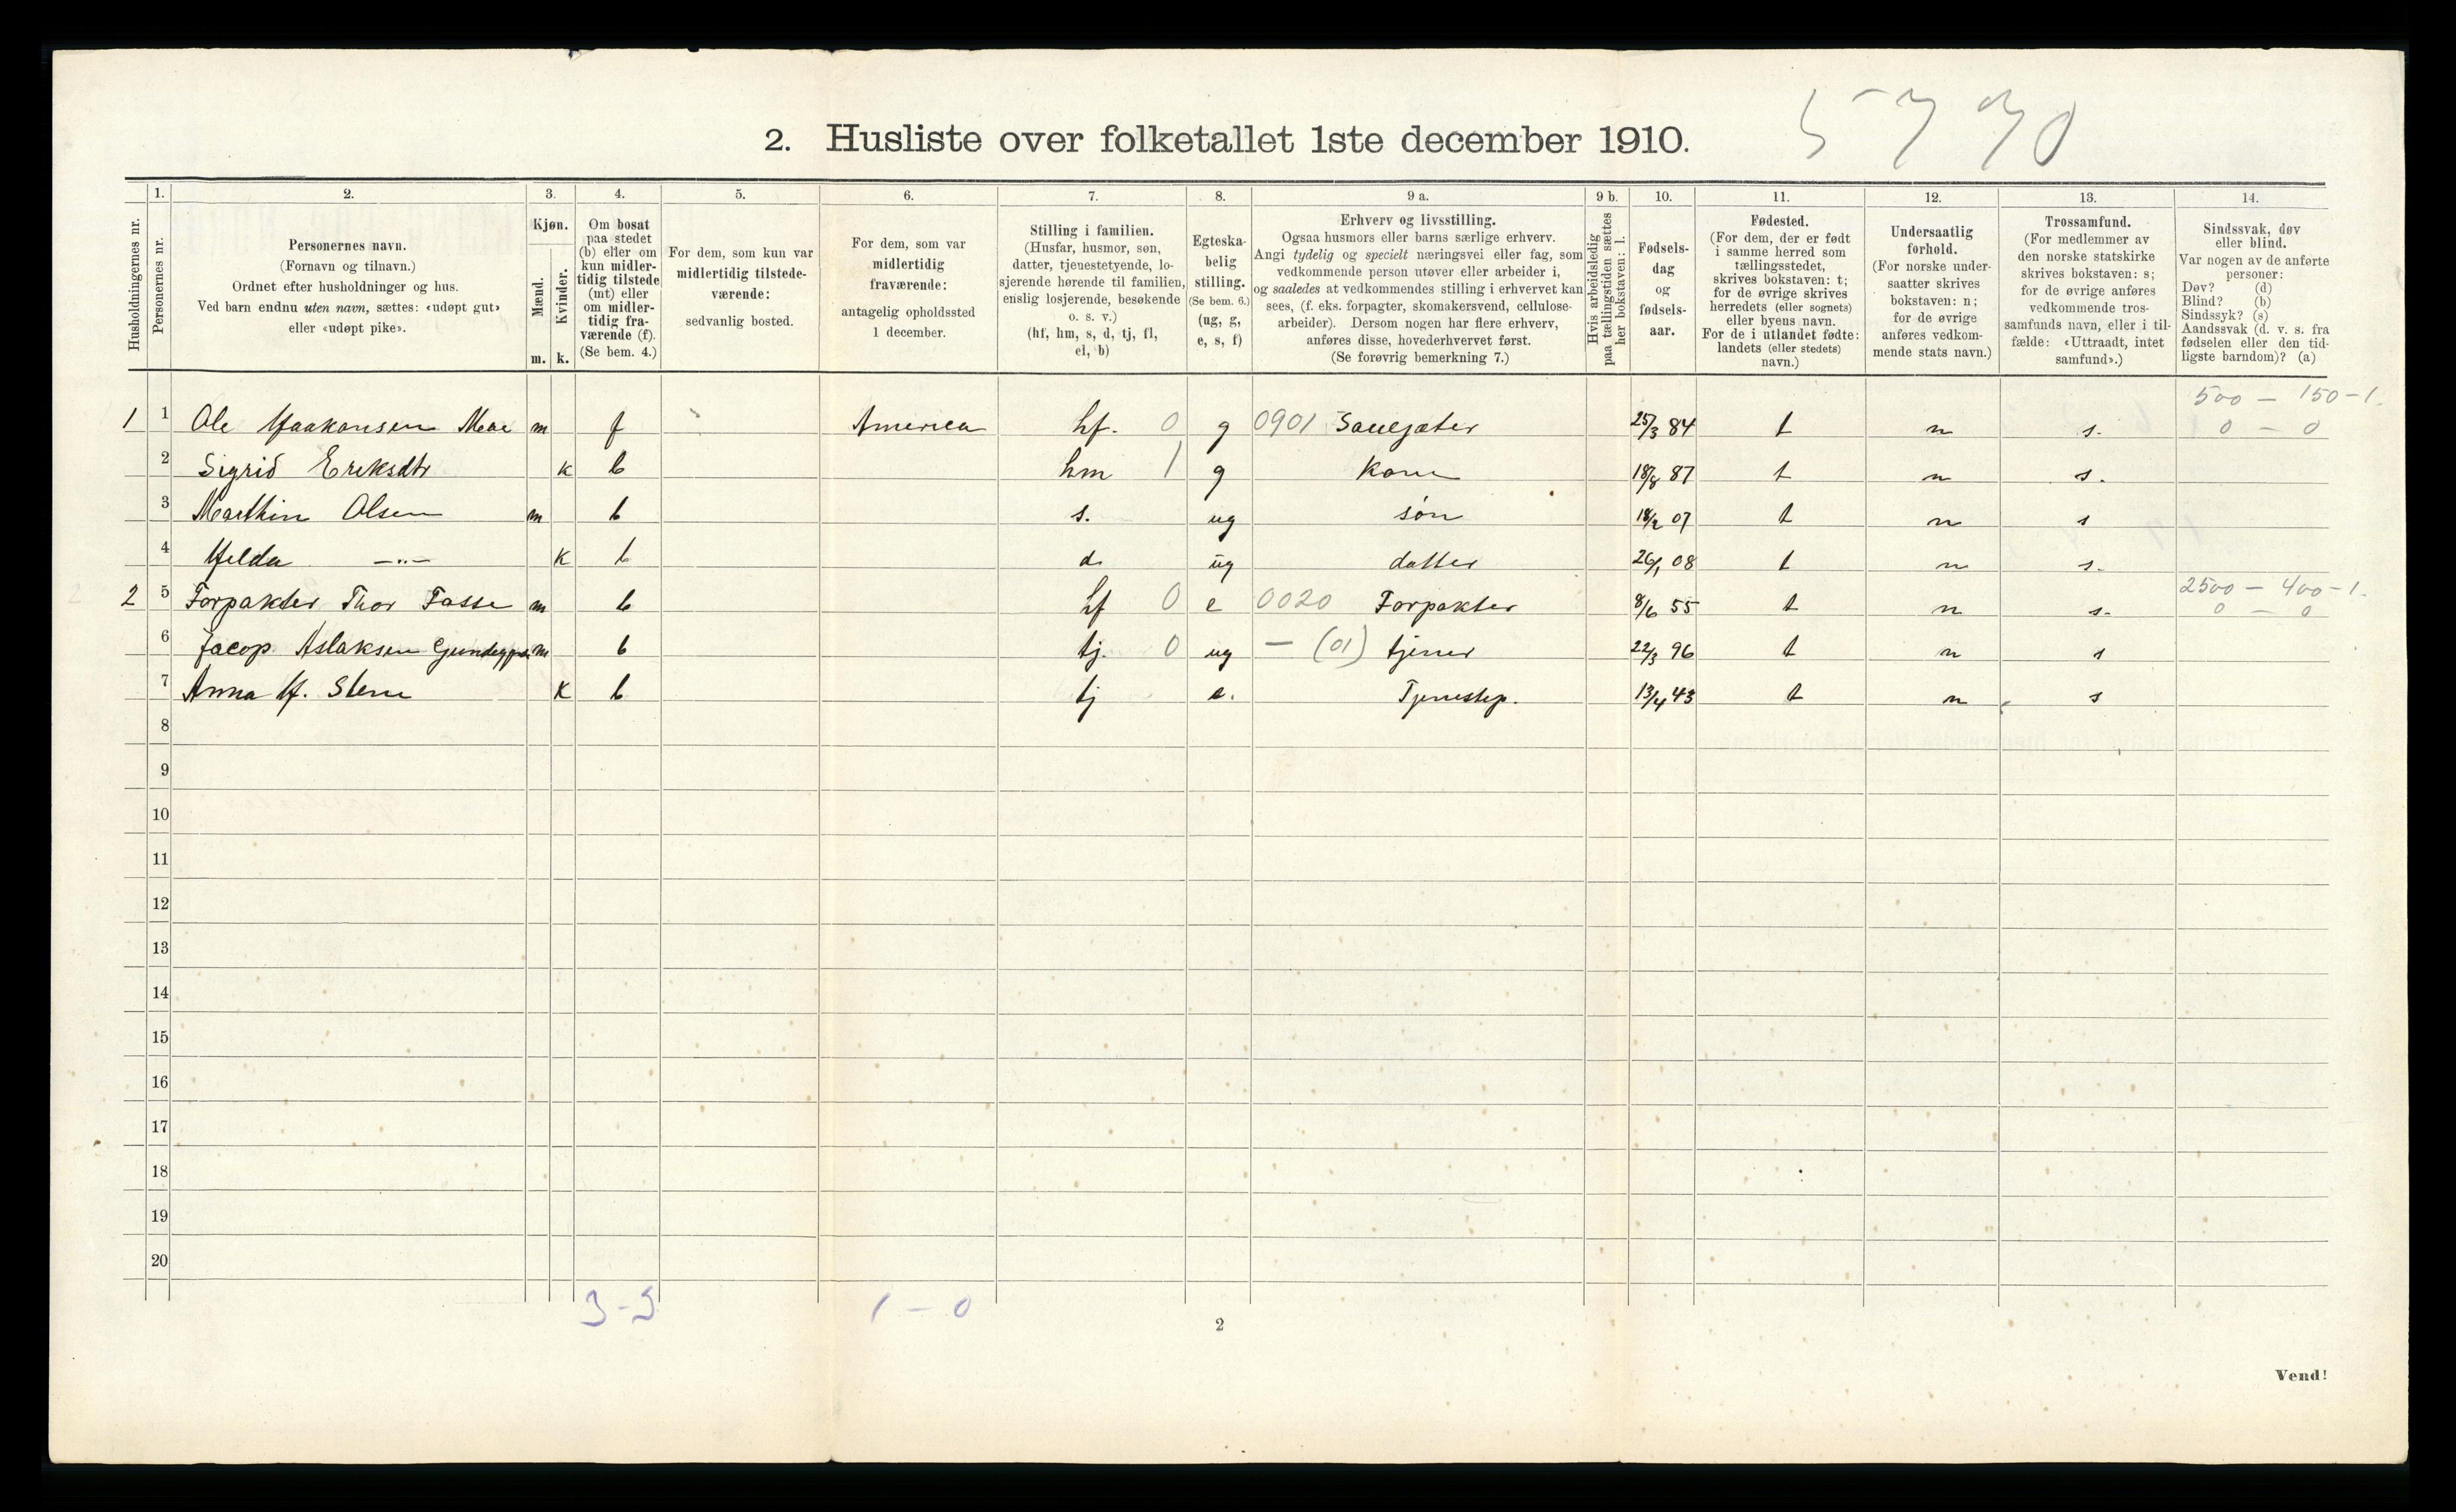 5770
2. Husliste over folketallet 1ste december 1910.
Husholdningernes nr.
1.
Personernes nr.
2.
Personernes navn.
(Fornavn og tilnavn.)
Ordnet efter husholdninger og hus.
Ved barn endnu uten navn, sættes: «udøpt gut»
eller «udøpt pike».
3.
Kjøn.
Mænd.
Kvinder.
m. k.
4.
Om bosat
paa stedet
(b) eller om
kun midler-
tidig tilstede
(mt) eller
om midler-
tidig fra-
værende (f).
(Se bem. 4.)
5.
For dem, som kun var
midlertidig tilstede-
værende:
sedvanlig bosted.
6.
For dem, som var
midlertidig
fraværende:
antagelig opholdssted
1 december.
7.
Stilling i familien.
(Husfar, husmor, søn,
datter, tjenestetyende, lo-
sjerende hørende til familien,
enslig losjerende, besøkende
o. s. v.)
(hf, hm, s, d, tj, fl,
el, b)
8.
Egteska-
belig
stilling.
(Se bem. 6.)
(ug, g,
e, s, f)
9 a.
Erhverv og livsstilling.
Ogsaa husmors eller barns særlige erhverv.
Angi tydelig og specielt næringsvei eller fag, som
vedkommende person utøver eller arbeider i,
og saaledes at vedkommendes stilling i erhvervet kan
sees, (f. eks. forpagter, skomakersvend, cellulose-
arbeider). Dersom nogen har flere erhverv,
anføres disse, hovederhvervet først.
(Se forøvrig bemerkning 7.)
9 b.
Hvis arbeidsledig
paa tællingstiden sættes
her bokstaven: l.
10.
Fødsels-
dag
og
fødsels-
aar.
11.
Fødested.
(For dem, der er født
i samme herred som
tællingsstedet,
skrives bokstaven: t;
for de øvrige skrives
herredets (eller sognets)
eller byens navn.
For de i utlandet fødte:
landets (eller stedets)
navn.)
12.
Undersaatlig
forhold.
(For norske under-
saatter skrives
bokstaven: n;
for de øvrige
anføres vedkom-
mende stats navn.)
13.
Trossamfund.
(For medlemmer av
den norske statskirke
skrives bokstaven: s;
for de øvrige anføres
vedkommende tros-
samfunds navn, eller i til-
fælde: «Uttraadt, intet
samfund».)
14.
Sindssvak, døv
eller blind.
Var nogen av de anførte
personer:
Døv? (d)
Blind? (b)
Sindssyk? (s)
Aandssvak (d. v. s. fra
fødselen eller den tid-
ligste barndom)? (a)
500 – 150 – 1.
1 1 Ole Haakonsen Moe m f America hf. 0 g 0901 Sauegjæter 25/3 84 t n s. 0 – 0
2 Sigrid Eriksdtr k b hm 1 g Kone 18/8 87 t n s.
3 Marthin Olsen m b s. ug søn 18/2 07 t n s
4 Helda —"— k b d. ug datter 26/1 08 t n s.
2500 – 400 – 1.
2 5 Forpakter Thor Fosse m b hf 0 e 0020 Forpakter 8/6 55 t n s. 0 – 0
6 Jacop Aslaksen m b tj. 0 ug — (01) tjener 22/3 96 t n s
7 Anna H. k b tj e. Tjenestep. 13/4 43 t n s
8
9
10
11
12
13
14
15
16
17
18
19
20
3 – 3 1 – 0
2
Vend!